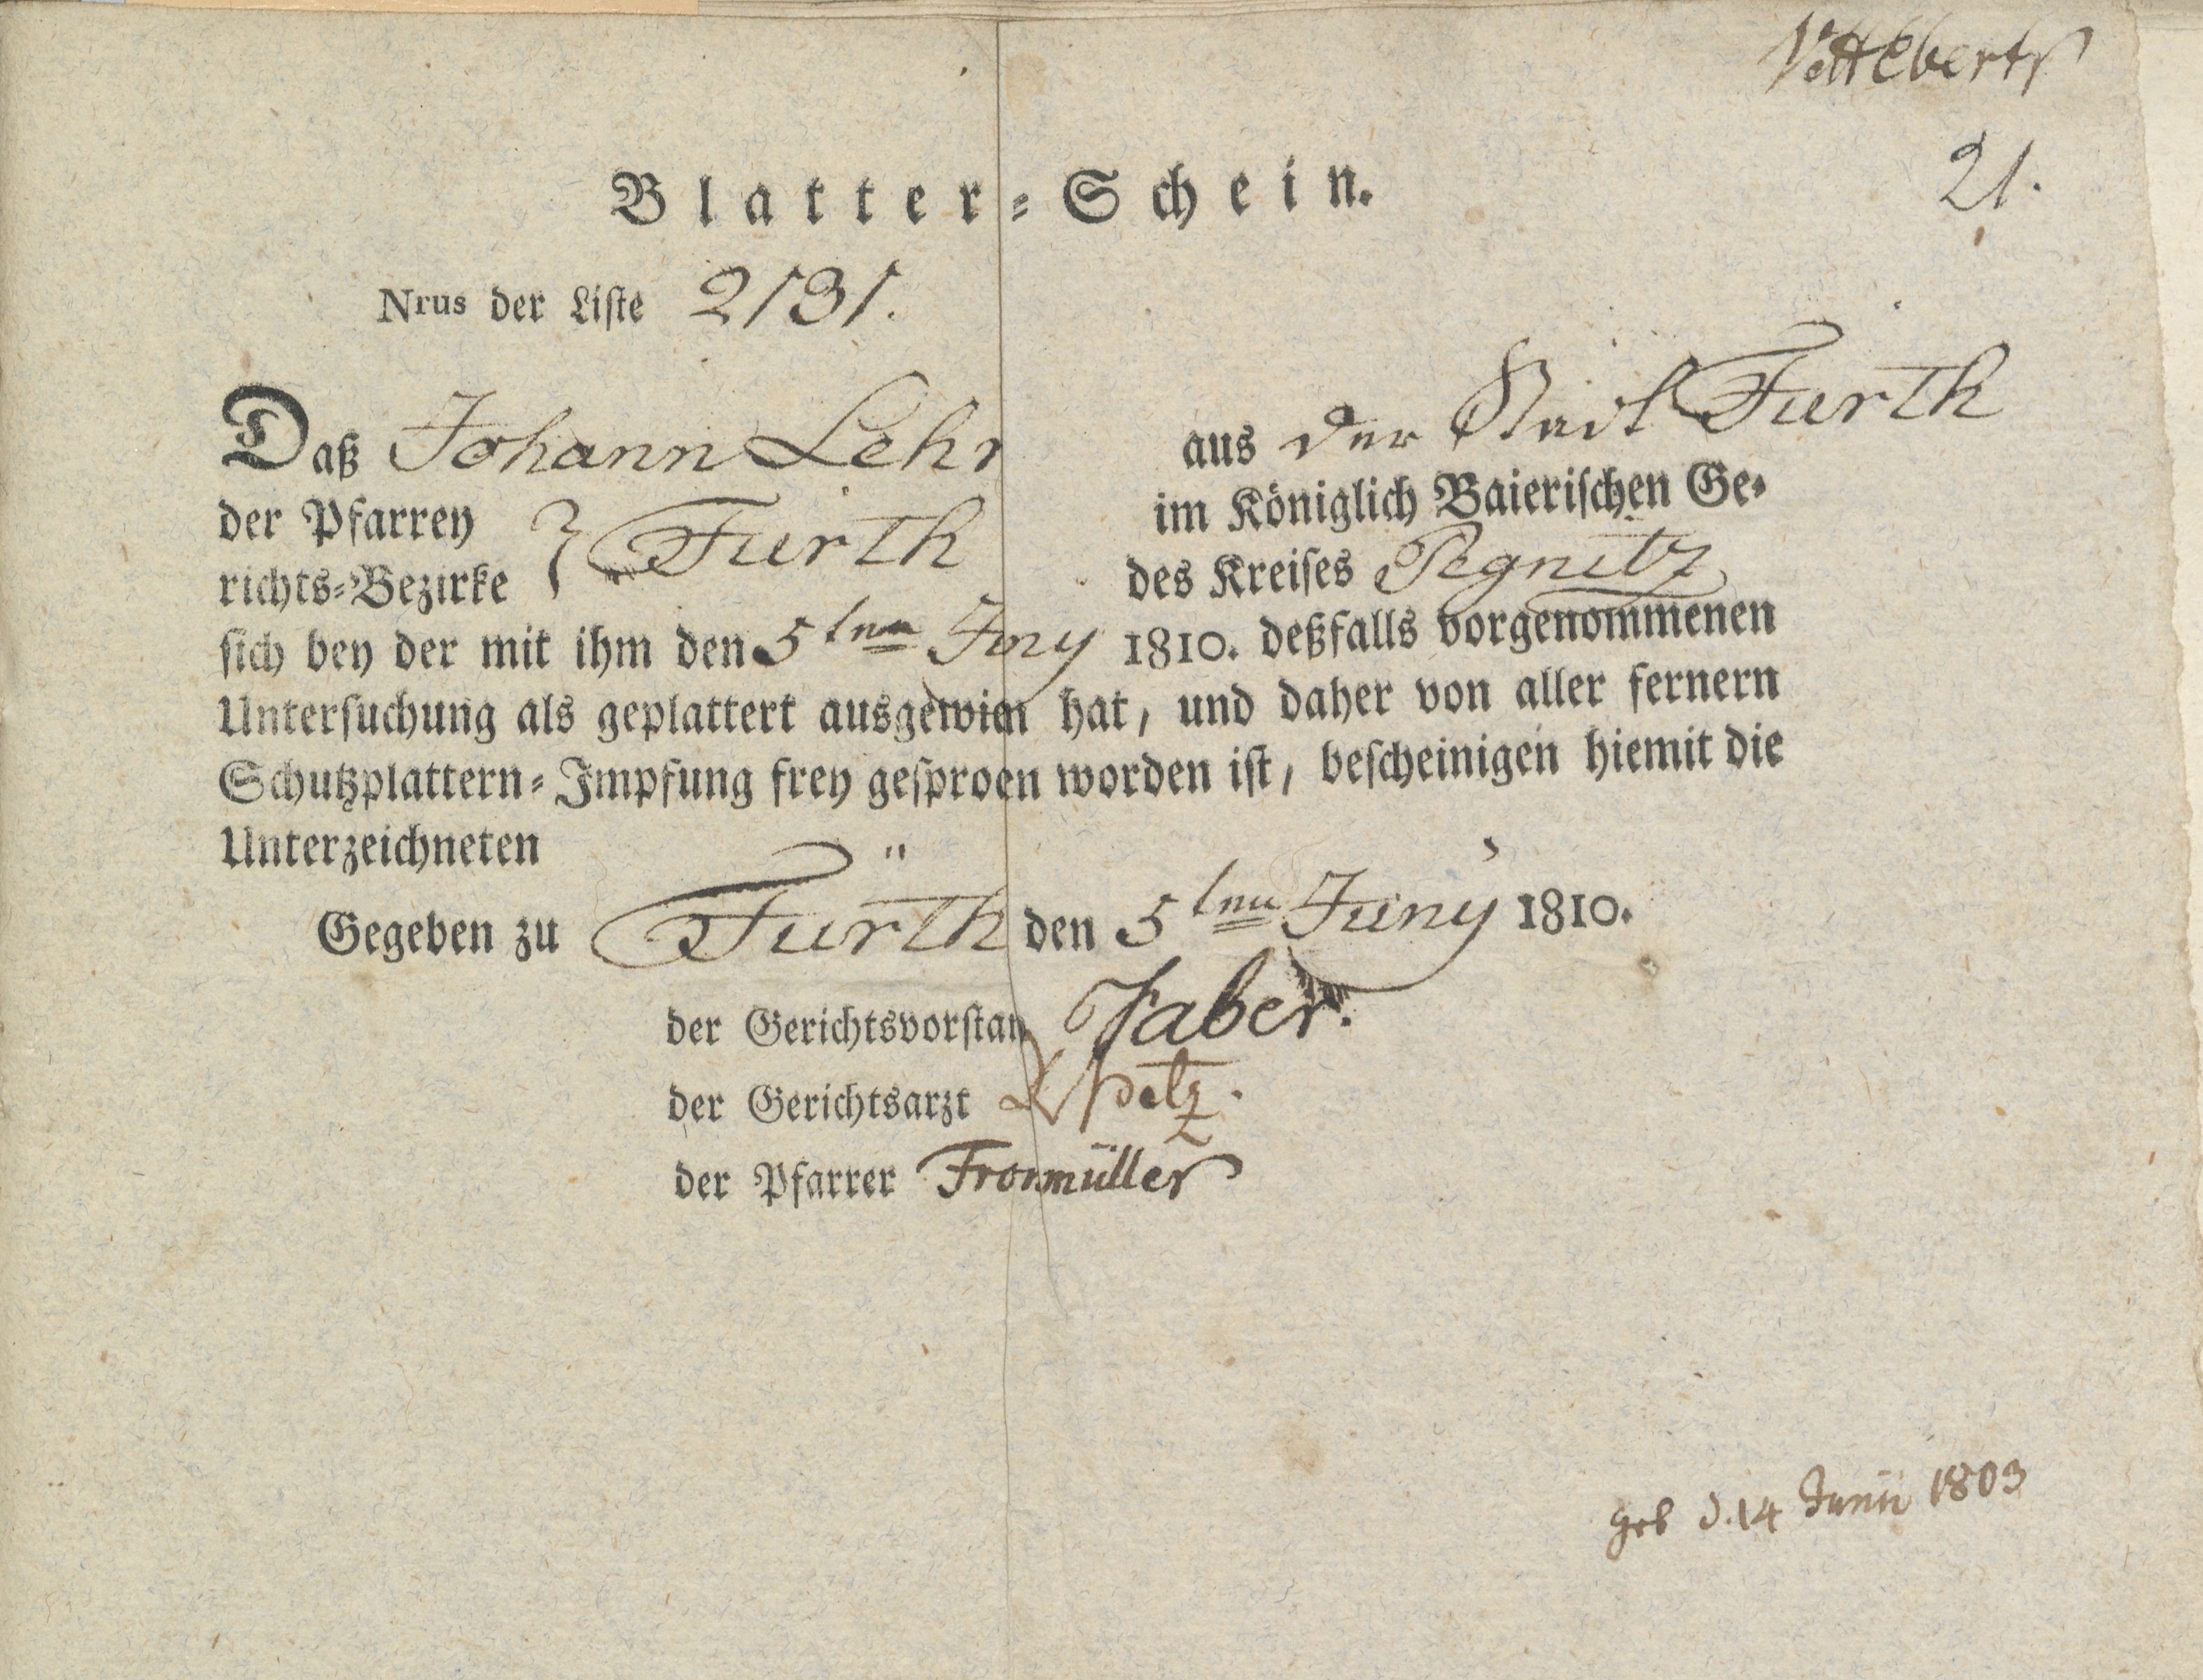 21.
Blatter-Schein.
Nrus der Liste 2131.
Daß Johann Lehr aus der Stadt Furth
der Pfarrey } Furth im Königlich Baierischen Ge-
richts-Bezirke des Kreises Pegnitz
sich bey der mit ihm den 5ten Juny 1810. deßfalls vorgenommenen
Untersuchung als geplattert ausgewien hat, und daher von aller fernern
Schutzplattern-Impfung frey gesproen worden ist, bescheinigen hiemit die
Unterzeichneten
Gegeben zu Fürth den 5ten Juny 1810.
der Gerichtsvorstan Faber.
der Gerichtsarzt
der Pfarrer Fronmüller
geb d. 14 Junii 1803